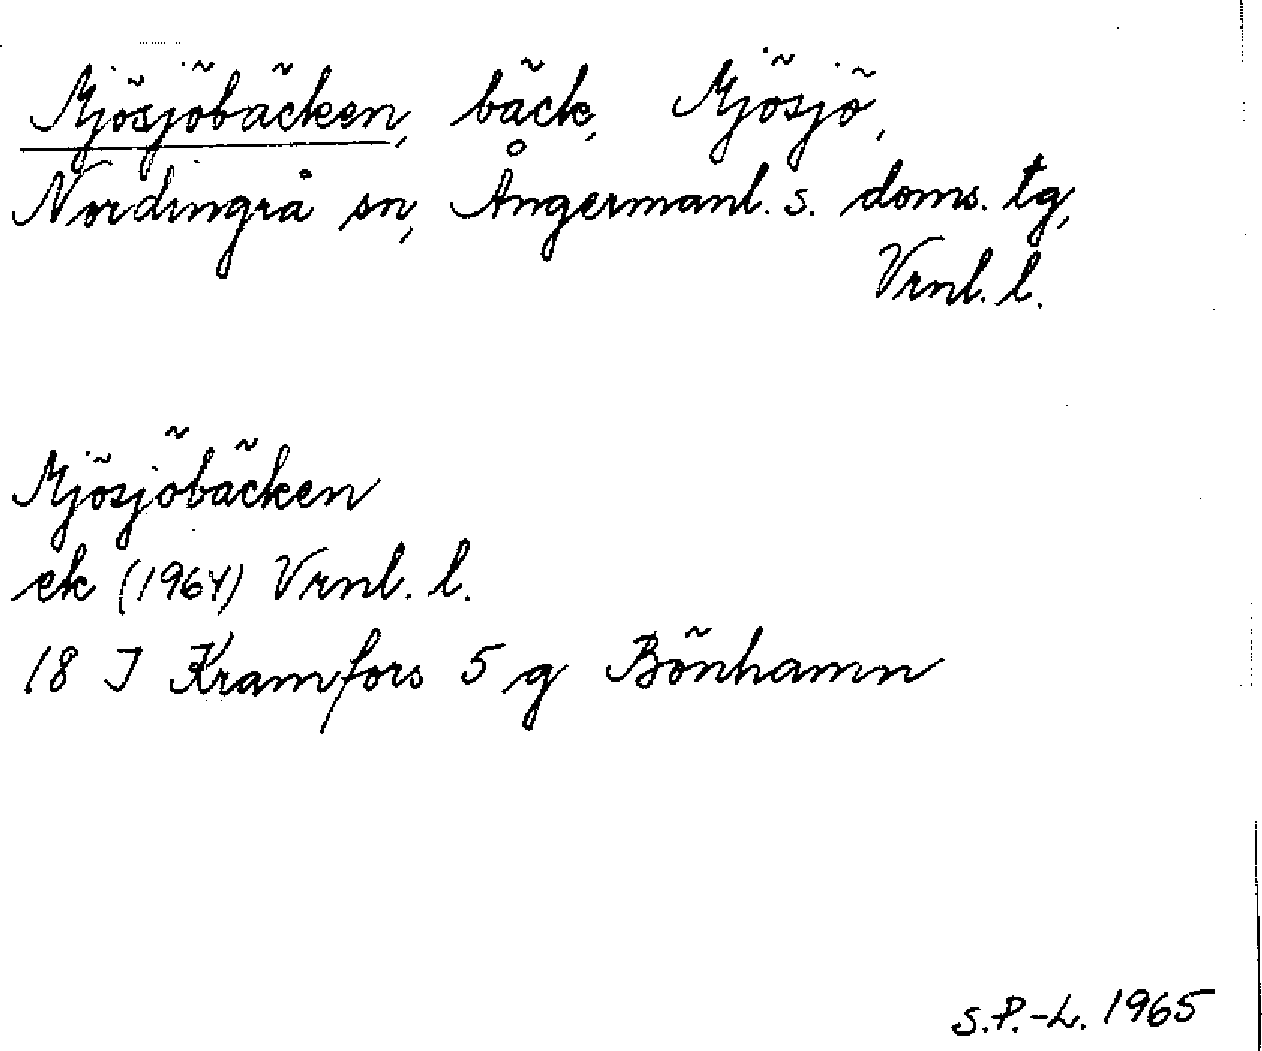 Mjösjöbäcken, bäck, Mjösjö,
Nordingrå sn, Ångermanl. s. doms. tg,
Vrnl. l.
Mjösjöbäcken
ek (1964) Vrnl. l.
18 J Kramfors 5 g Bönhamn
S.P.-L. 1965